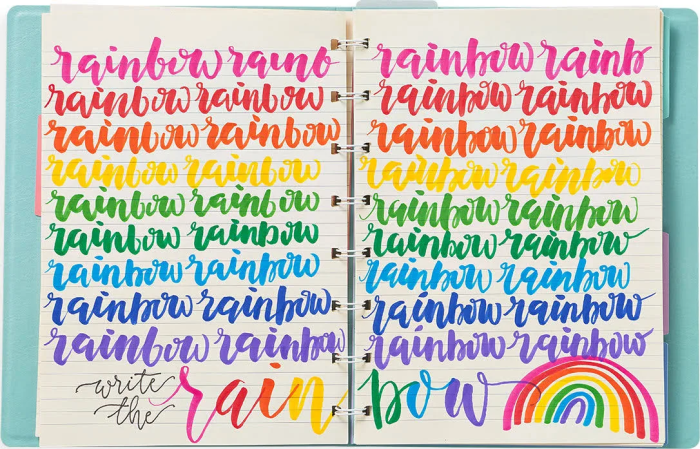 rainbow rainb
rainbow rainbow
rainbow rainbow
rainbow rainbow
rainbow rainbow
rainbow rainbow
rainbow rainbow
rainbow rainbow
rainbow rainbow
rainbow rainb
rainbow rainbow
rainbow rainbow
rainbow rainbow
rainbow rainbow
rainbow rainbow
rainbow rainbow
rainbow rainbow
rainbow rainbow
write
the
rainbow